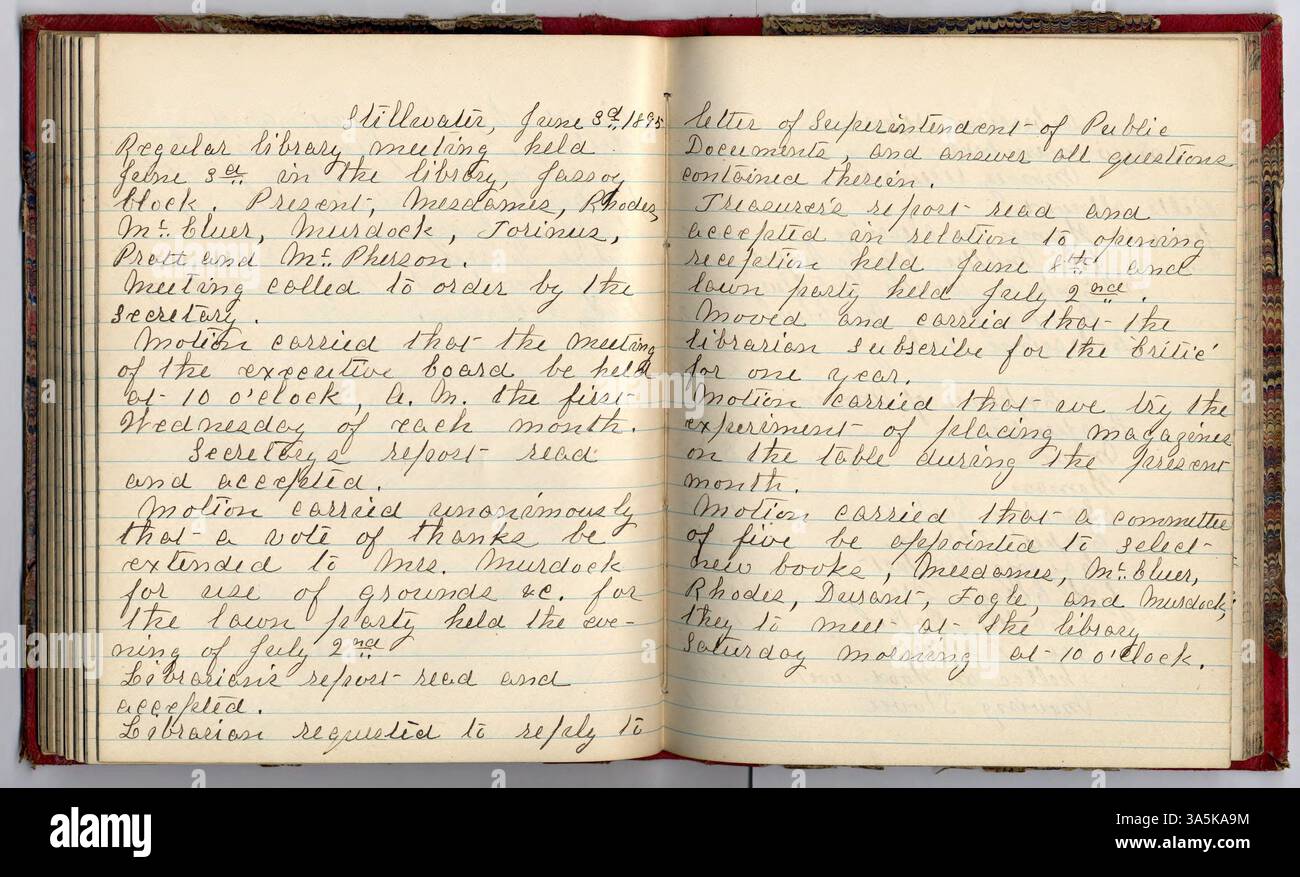 Stillwater, June 3d, 1895
Regular library meeting held
June 3d in the library, Jassoy
block. Present, Mesdames, Rhodes,
Mc Cluer, Murdock, Torinus,
Pratt and Mc Pherson.
Meeting called to order by the
secretary.
Motion carried that the meeting
of the executive board be held
at 10 o'clock, A. M. the first
Wednesday of each month.
Secretary's report read
and accepted.
Motion carried unanimously
that a vote of thanks be
extended to Mrs. Murdock
for use of grounds &c. for
the lawn party held the eve-
ning of July 2nd
Librarian's report read and
accepted.
Librarian requested to reply to
letter of Superintendent of Public
Documents, and answer all questions
contained therein.
Treasurer's report read and
accepted in relation to opening
reception held June 8th and
lawn party held July 2nd.
Moved and carried that the
librarian subscribe for the Critic
for one year.
Motion carried that we try the
experiment of placing magazines
on the table during the present
month.
Motion carried that a committee
of five be appointed to select
new books, Mesdames, Mc Cluer,
Rhodes, Durant, Fogle, and Murdock,
they to meet at the library
Saturday morning at 10 o'clock.
alamy
Image ID: 3A5KA9M
www.alamy.com